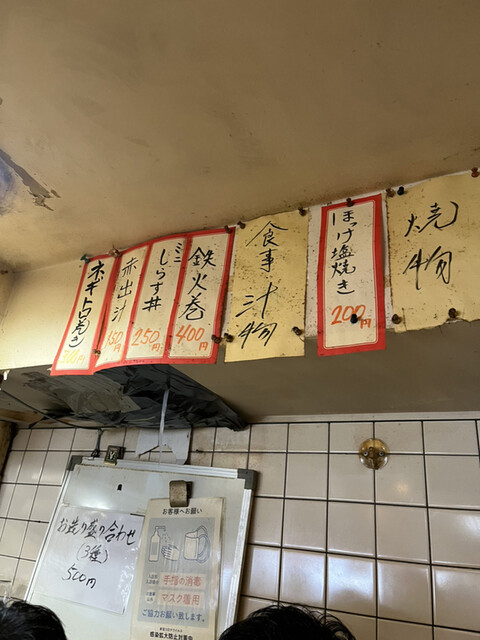 焼物
ほっけ塩焼き
200円
食事・汁物
鉄火巻
400円
ミニ
しらす丼
250円
赤出汁
150円
ネギトロ巻き
お造り盛り合わせ
(3種)
500円
お客様へお願い
手指の消毒
マスク着用
ご協力お願い致します。
感染拡大防止対策中